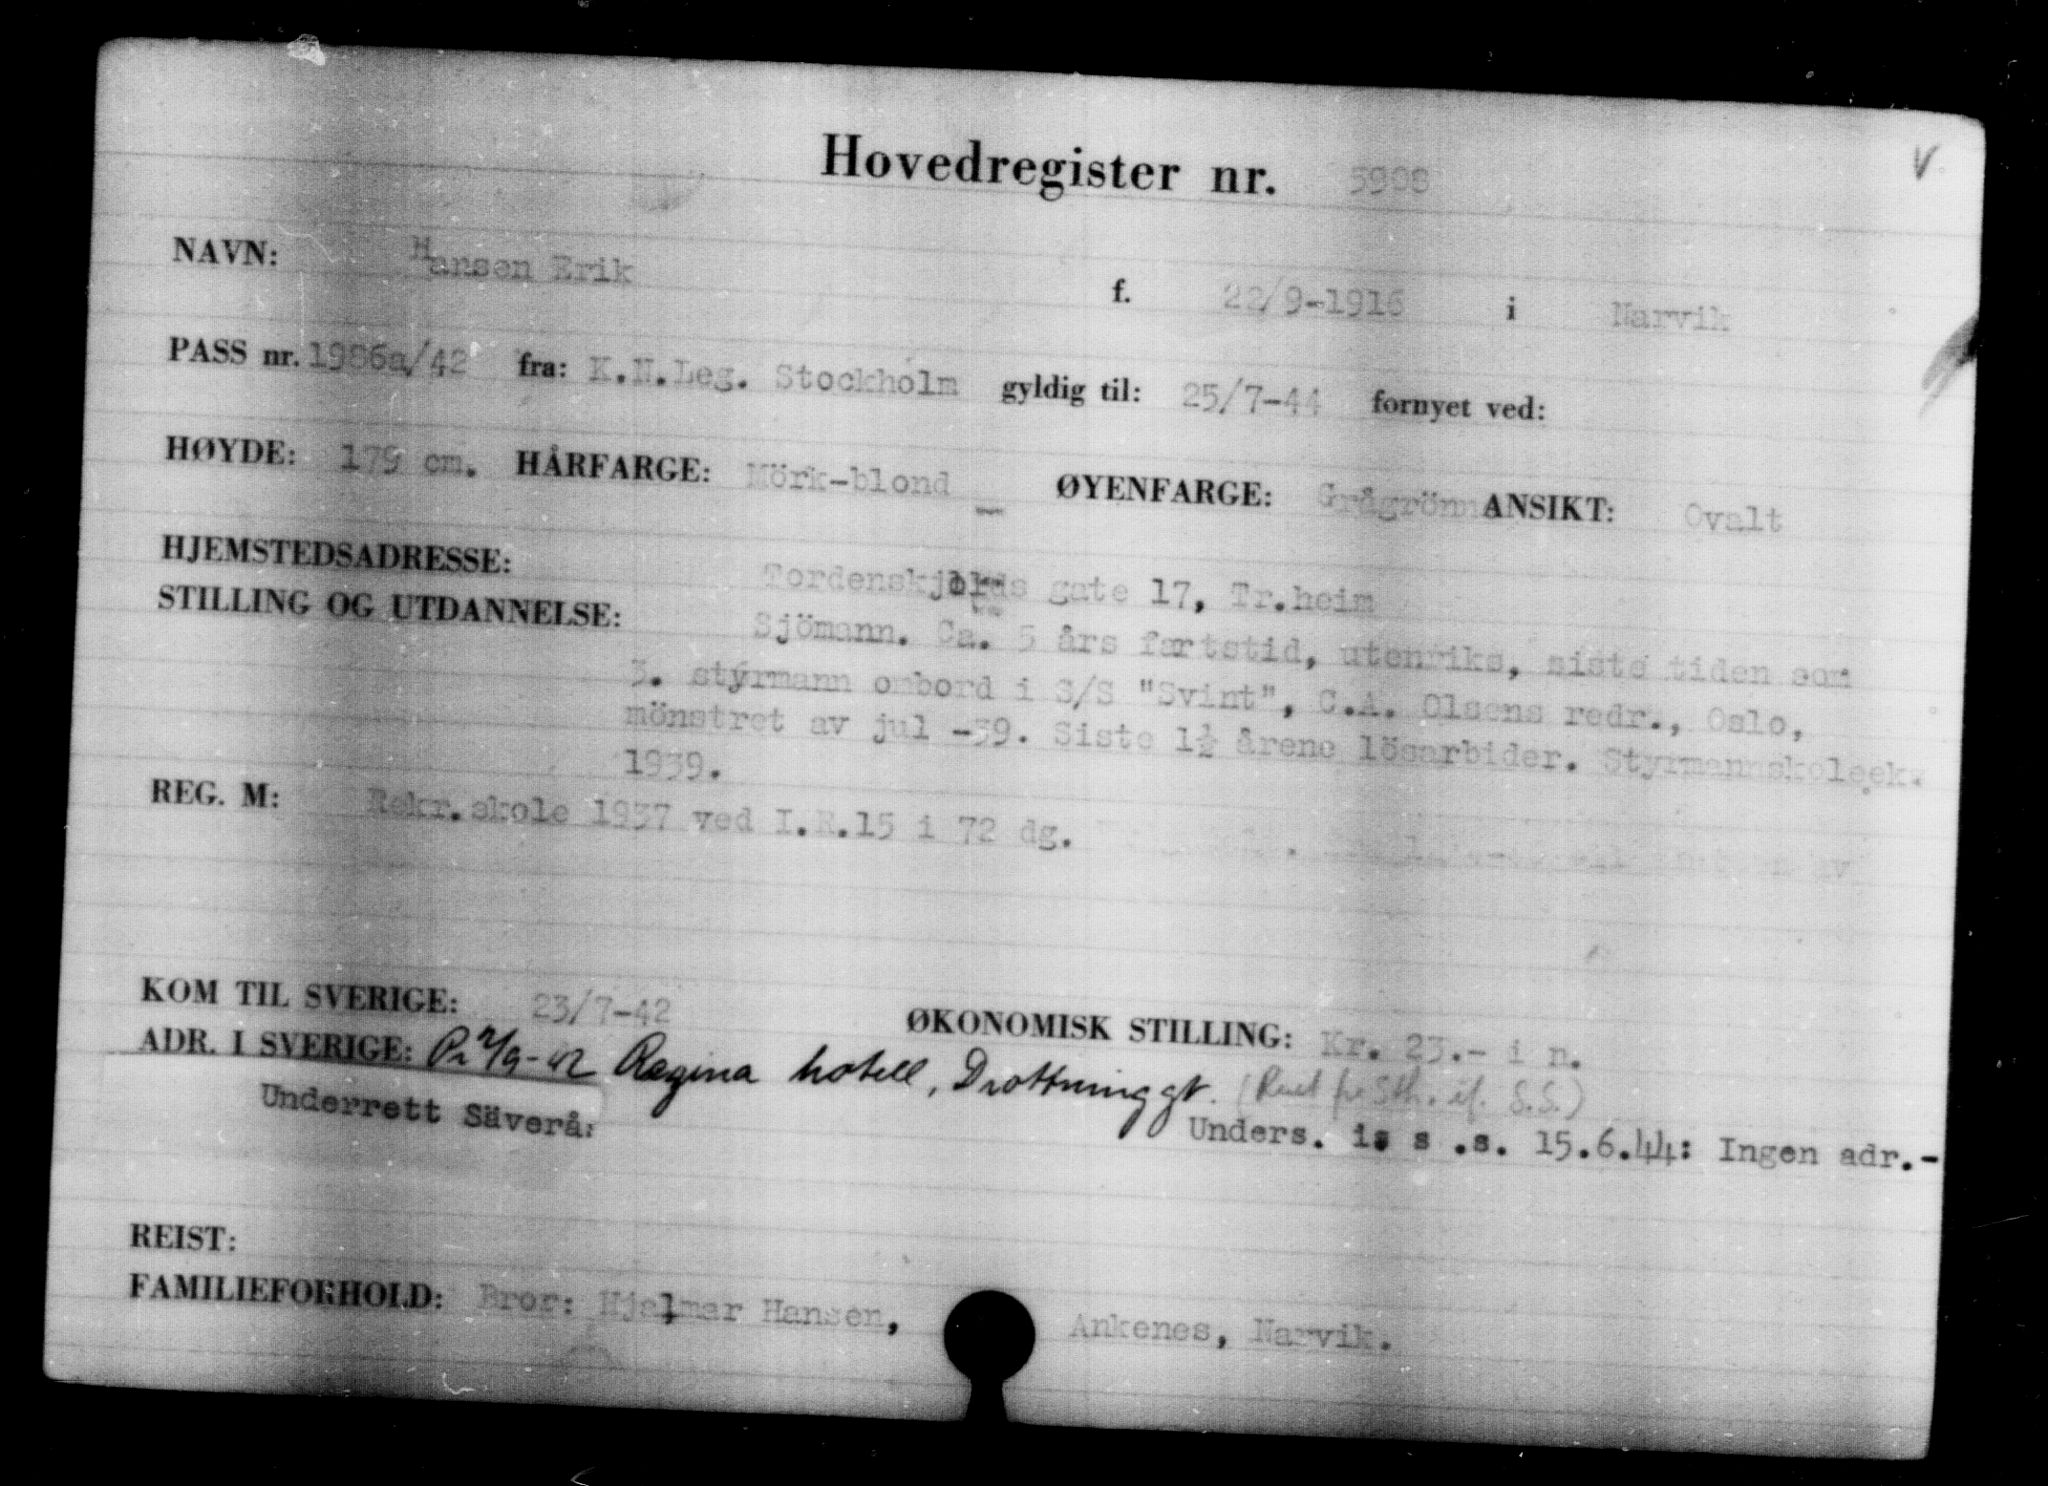 Hovedregister nr. 5988
V
NAVN: Hansen Erik f. 22/9-1916 i Narvik
PASS nr. 1986a/42 fra: K.N.Leg. Stockholm gyldig til: 25/7-44 fornyet ved:
HØYDE: 179 cm. HÅRFARGE: Mörk-blond ØYENFARGE: Grågrönn ANSIKT: Ovalt
HJEMSTEDSADRESSE: Tordenskjolds gate 17, Tr.heim
STILLING OG UTDANNELSE: Sjömann. Ca. 5 års fartstid, utenriks, siste tiden som
3. styrmann ombord i S/S "Svint", C.A. Olsens redr., Oslo,
mönstret av jul -39. Siste 1½ årene lösarbider. Styrmannskoleek.
1939.
REG. M: Rekr.skole 1937 ved I.R.15 i 72 dg.
KOM TIL SVERIGE: 23/7-42 ØKONOMISK STILLING: Kr. 23.- i n.
ADR. I SVERIGE: Pr 2/9-42 Regina hotell, Drottninggt. (Reist fra Sth. if. S.S.)
Underrett Säverå: Unders. i. s .s. 15.6.44: Ingen adr.-
REIST:
FAMILIEFORHOLD: Bror: Hjalmar Hansen, Ankenes, Narvik.